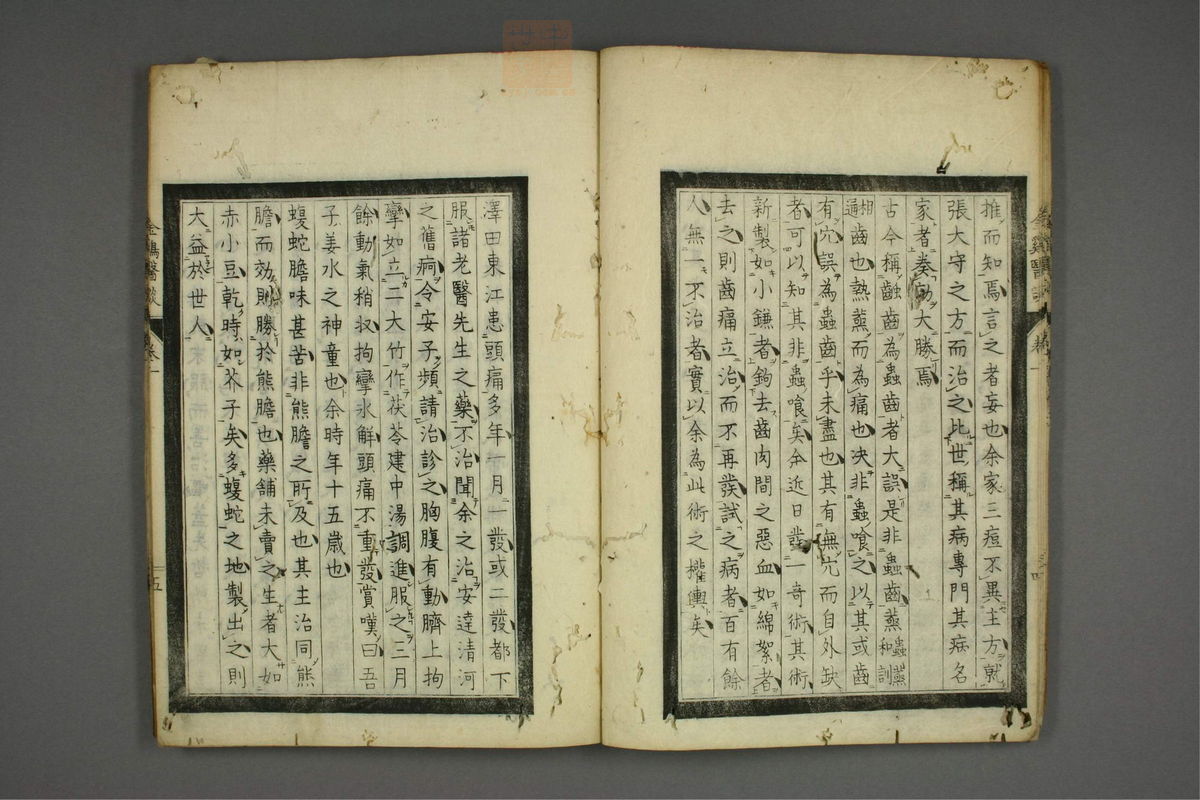 推而知焉言之者妄也余家三痘不異主方就
張大守之方而治之比世稱其病專門其病名
家者奏効大勝焉
古今稱齲齒為蟲齒者大誤是非蟲齒蒸蟲蒸和訓
相通齒也熱蒸而為痛也决非蟲喰之以其或齒
有宂誤為蟲齒乎未盡也其有無宂而自外缺
者可以知其非蟲喰矣余近日發一奇術其術
新製如小鐮者鉤去齒肉間之惡血如綿絮者
去之則齒痛立治而不再發試之病者百有餘
人無一不治者實以余為此術之權輿矣
金鷄醫談 卷一 四
澤田東江患頭痛多年一月一發或二發都下
服諸老醫先生之藥不治聞余之治安達清河
之舊痾令安子頻請治診之胸腹有動臍上拘
攣如立二大竹作茯苓建中湯調進服之三月
餘動氣稍収拘攣氷解頭痛不重發賞嘆曰吾
子姜水之神童也余時年十五歳也
蝮蛇膽味甚苦非熊膽之所及也其主治同熊
膽而効則勝於熊膽也藥舗未賣之生者大如
赤小豆乾時如芥子矣多蝮蛇之地製出之則
大益於世人
金鷄醫談 卷一 五